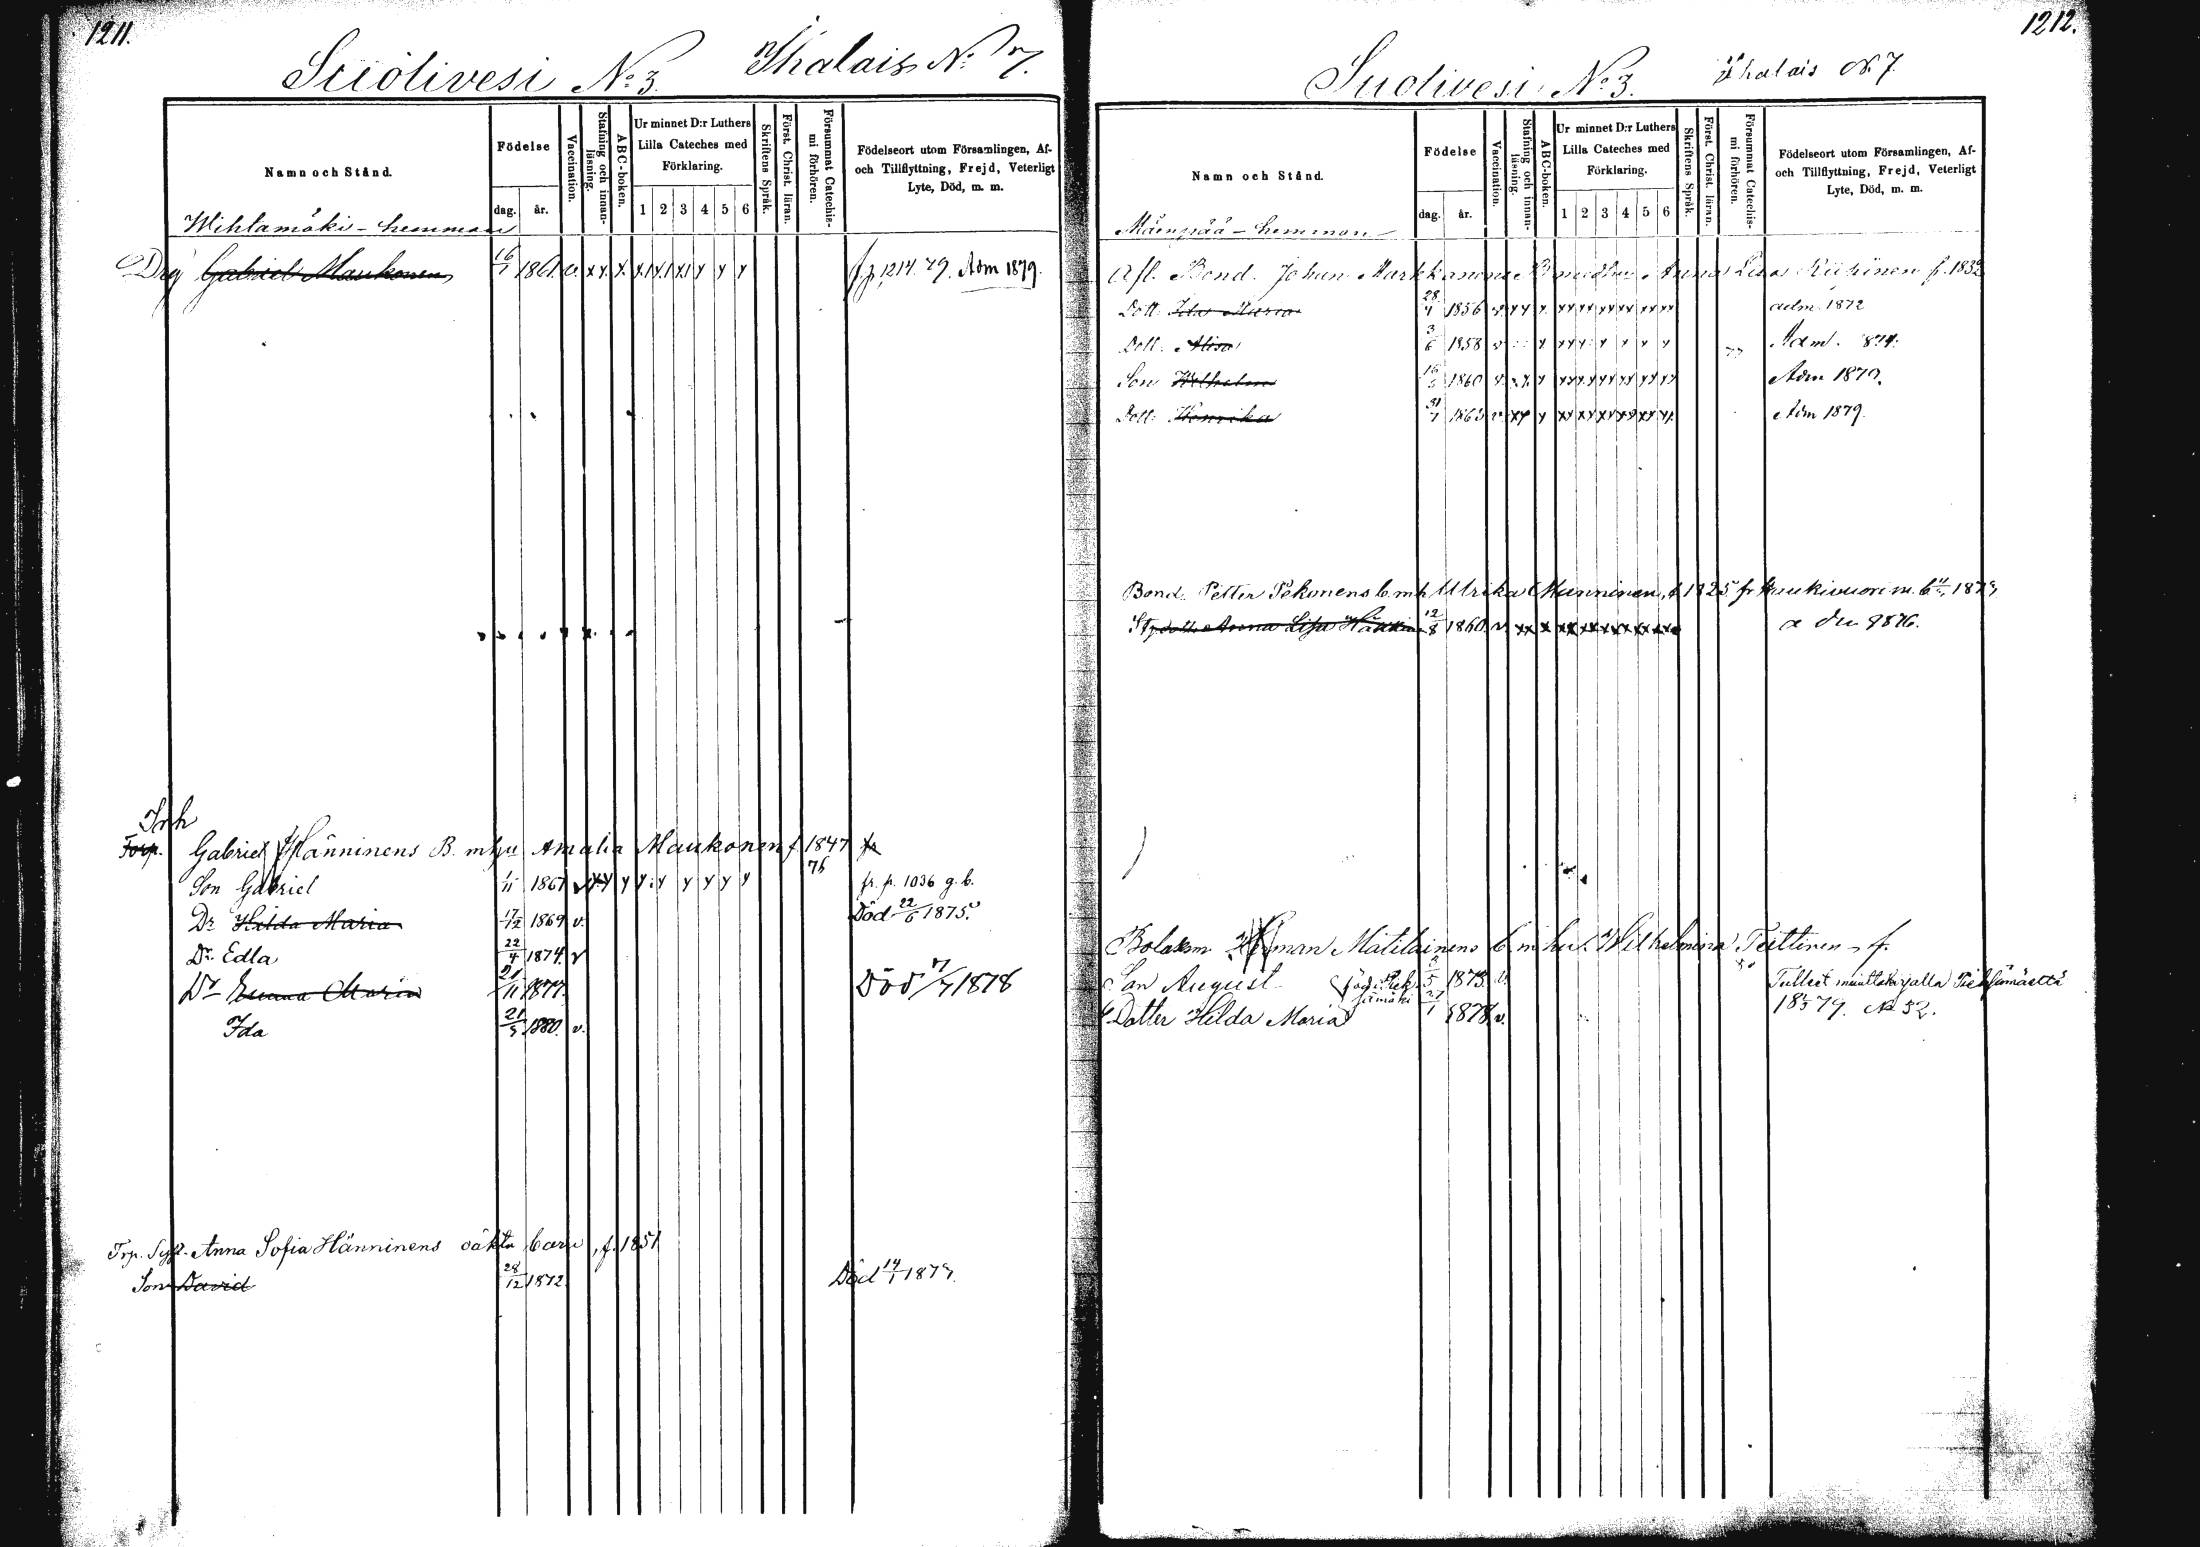 1211.
Suolivesi No 3. Ihalais No 7.
Namn och Stånd.
Födelse
dag.
år.
Vaccination.
Stafning och innan-läsning.
ABC-boken.
Ur minnet D:r Luthers
Lilla Cateches med
Förklaring.
1 2 3 4 5 6
Skriftens Språk.
Först. Christ. läran.
Försummat Catechis-
mi förhören.
Födelseort utom Församlingen, Af-
och Tillflyttning, Frejd, Veterligt
Lyte, Död, m. m.
Wihtamäki - hemman
Drg Gabriel Maukonen 16/7 1861 v. fr. p. 1214. 79. Adm 1879.
Inh
Torp. Gabriel Hänninens B. m hu Amalia Maukonen f 1847 fr
76
Son Gabriel 1/11 1867 v fr. p. 1036 g. b.
Dr Hilda Maria 17/12 1869 v. Död 22/6 1875.
Dr. Edla 22/4 1874. v
Dr Emma Maria 21/11 1877. Död 7/7 1878
Ida 21/5 1880. v.
Trp. Syst. Anna Sofia Hänninens oäkta barn, f. 1851
Son David 28/12 1872. Död 14/1 1877.
1212.
Suolivesi No 3. Ihalais No 7.
Namn och Stånd.
Födelse
dag.
år.
Vaccination.
Stafning och innan-läsning.
ABC-boken.
Ur minnet D:r Luthers
Lilla Cateches med
Förklaring.
1 2 3 4 5 6
Skriftens Språk.
Först. Christ. läran.
Försummat Catechis-
mi förhören.
Födelseort utom Församlingen, Af-
och Tillflyttning, Frejd, Veterligt
Lyte, Död, m. m.
Mäenpää - hemman
Afl. Bond. Johan Markkanens B medhu Anna Lisa f. 1832
Dott. Ida Maria 28 1856 adm. 1872
Dott. Alisa 3/6 1858 v Adm. 874.
Son Wilhelm 16 1860 Adm 1879.
Dott. Henrika 31 1863 v Adm 1879.
Bond. Petter Pekonens b. m h Ulrika Manninen, f 1825 fr Haukivuori
Anna Lisa Häkkin 12/8 1860. v
Herman Matilainens b. m hu. Wilhelmina Teittinen f.
Son August 1875. v.
Dotter Hilda Maria 27/1 1878. v.
Tulleet muuttokirjalla Pieksämäeltä
18 5/5 79. No 52.